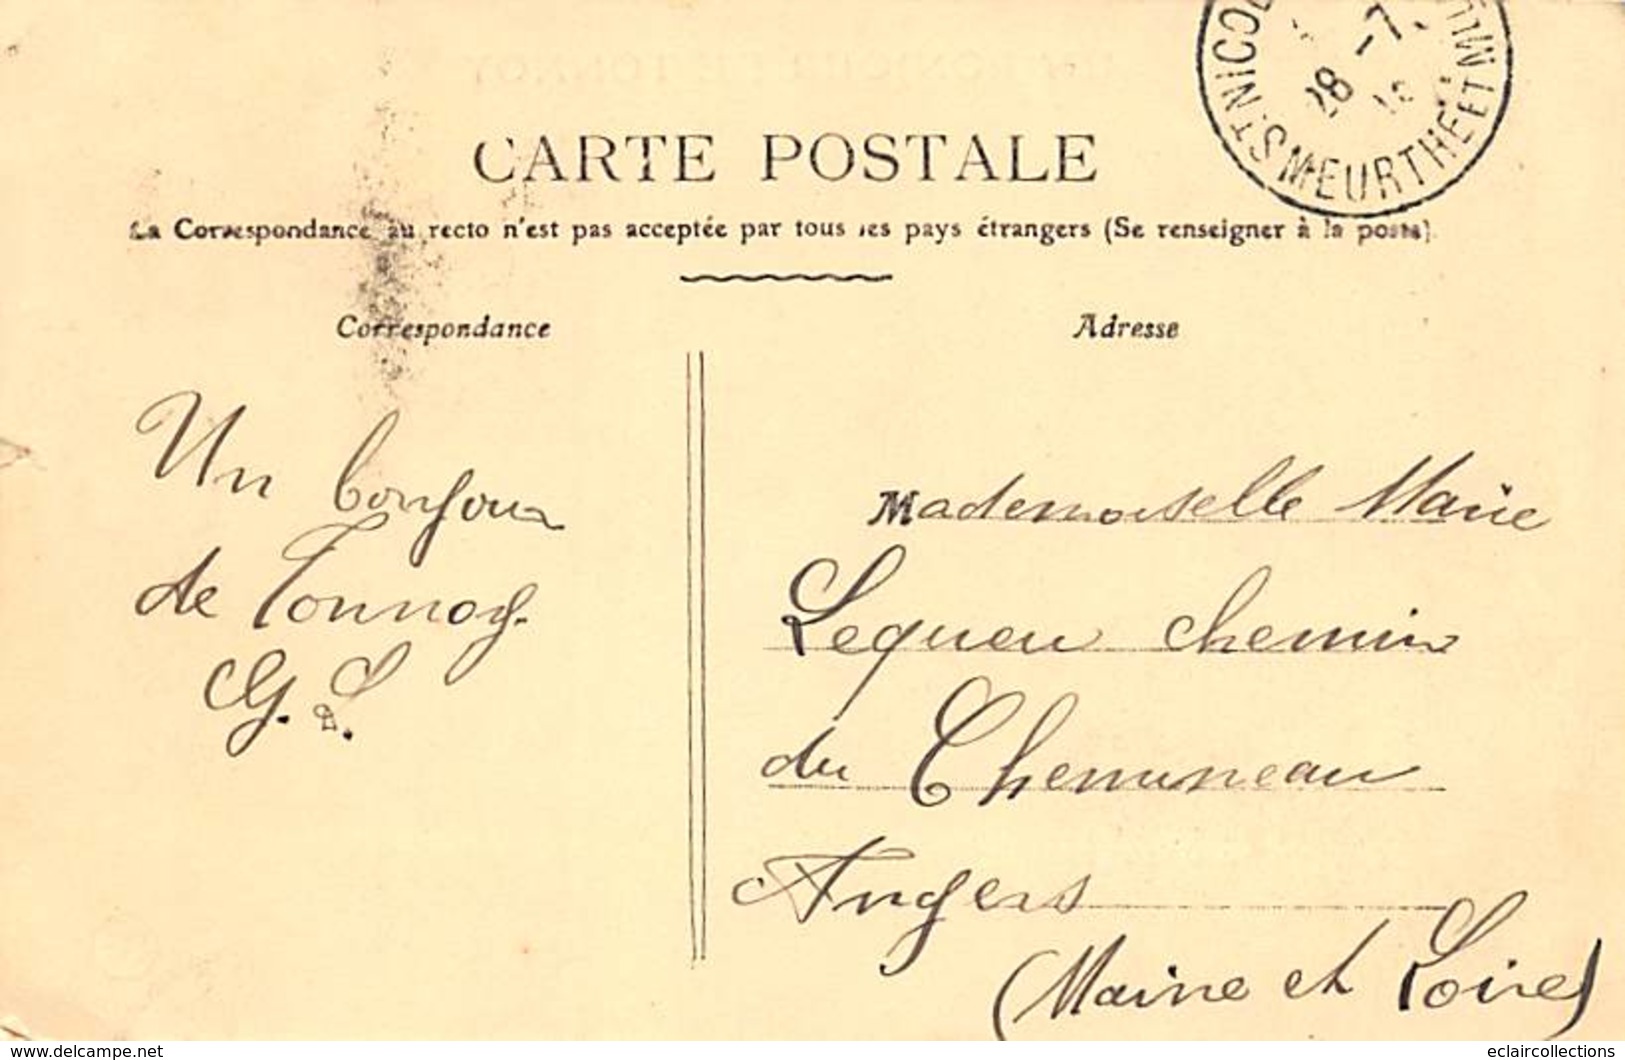 CARTE POSTALE
La Correspondance au recto n'est pas acceptée par tous les pays étrangers (Se renseigner à la poste)
Correspondance
Adresse
Un bonjour
de Tonnoy.
G. L.
Mademoiselle Marie
Lequeu chemin
du Chemineau
Angers
(Maine et Loire)
ST NICOL
MEURTHE ET M
28 -7
delcampe.net
eclaircollections